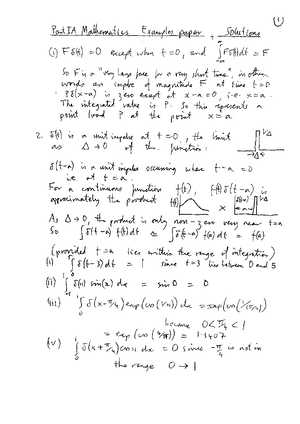 1
Part IA Mathematics Examples paper Solutions
(i) Fδ(t) = 0 except when t=0, and ∫Fδ(t)dt = F
So F is a "very large force for a very short time", in other
words an impulse of magnitude F at time t=0
Pδ(x-a) is zero except at x-a=0, i.e. x=a.
The integrated value is P. So this represents a
point load P at the point x=a.
2. δ(t) is a unit impulse at t=0, the limit
as Δ→0 of the function:
δ(t-a) is a unit impulse occurring when t-a=0
i.e. at t=a.
For a continuous function f(t), f(t)δ(t-a) is
approximately the product f(t) ×
As Δ→0, the product is only non-zero very near t=a
So ∫δ(t-a)f(t)dt ≃ ∫δ(t-a)f(a)dt = f(a)
(provided t=a lies within the range of integration)
(i) ∫δ(t-3)dt = 1 since t=3 lies between 0 and 5
(ii) ∫δ(x) sin(x)dx = sin 0 = 0
(iii) ∫δ(x-π/4)exp(cos(1/x))dx = exp(cos(1/(π/4)))
because 0<π/4<1
= exp(cos(4/π)) = 1.3407
(iv) ∫δ(x+π/4)cos x dx = 0 since -π/4 is not in
the range 0→1